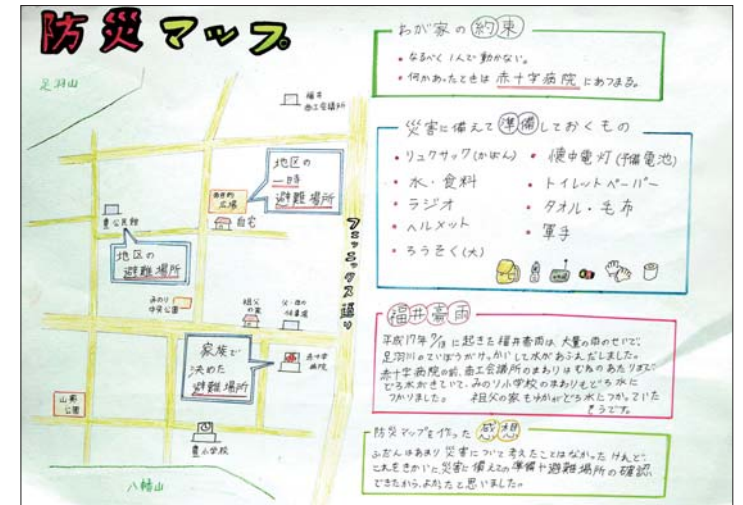 防災マップ
足羽山
福井
商工会議所
地区の
一時
避難場所
多目的
広場
自宅
豊公民館
地区の
避難場所
フェニックス通り
みのり
中央公園
祖父
の家
父・母の
仕事場
家族で
決めた
避難場所
赤十字
病院
山奥
公園
豊小学校
八幡山
わが家の約束
・なるべく1人で動かない。
・何かあったときは赤十字病院にあつまる。
災害に備えて準備しておくもの
・リュクサック(かばん)
・水・食料
・ラジオ
・ヘルメット
・ろうそく(大)
・懐中電灯(予備電池)
・トイレットペーパー
・タオル・毛布
・軍手
福井豪雨
平成17年7/18に起きた福井豪雨は、大量の雨のせいで、
足羽川のていぼうがけっかいして水があふれだしました。
赤十字病院の前、商工会議所のまわりはむねのあたりまで、
どろ水がきていて、みのり小学校のまわりもどろ水に
つかりました。 祖父の家もゆかがどろ水につかっていた
そうです。
防災マップを作った感想
ふだんはあまり災害について考えたことはなかったけれど、
これをきかいに、災害に備えての準備や避難場所の確認
できたから、よかったと思いました。